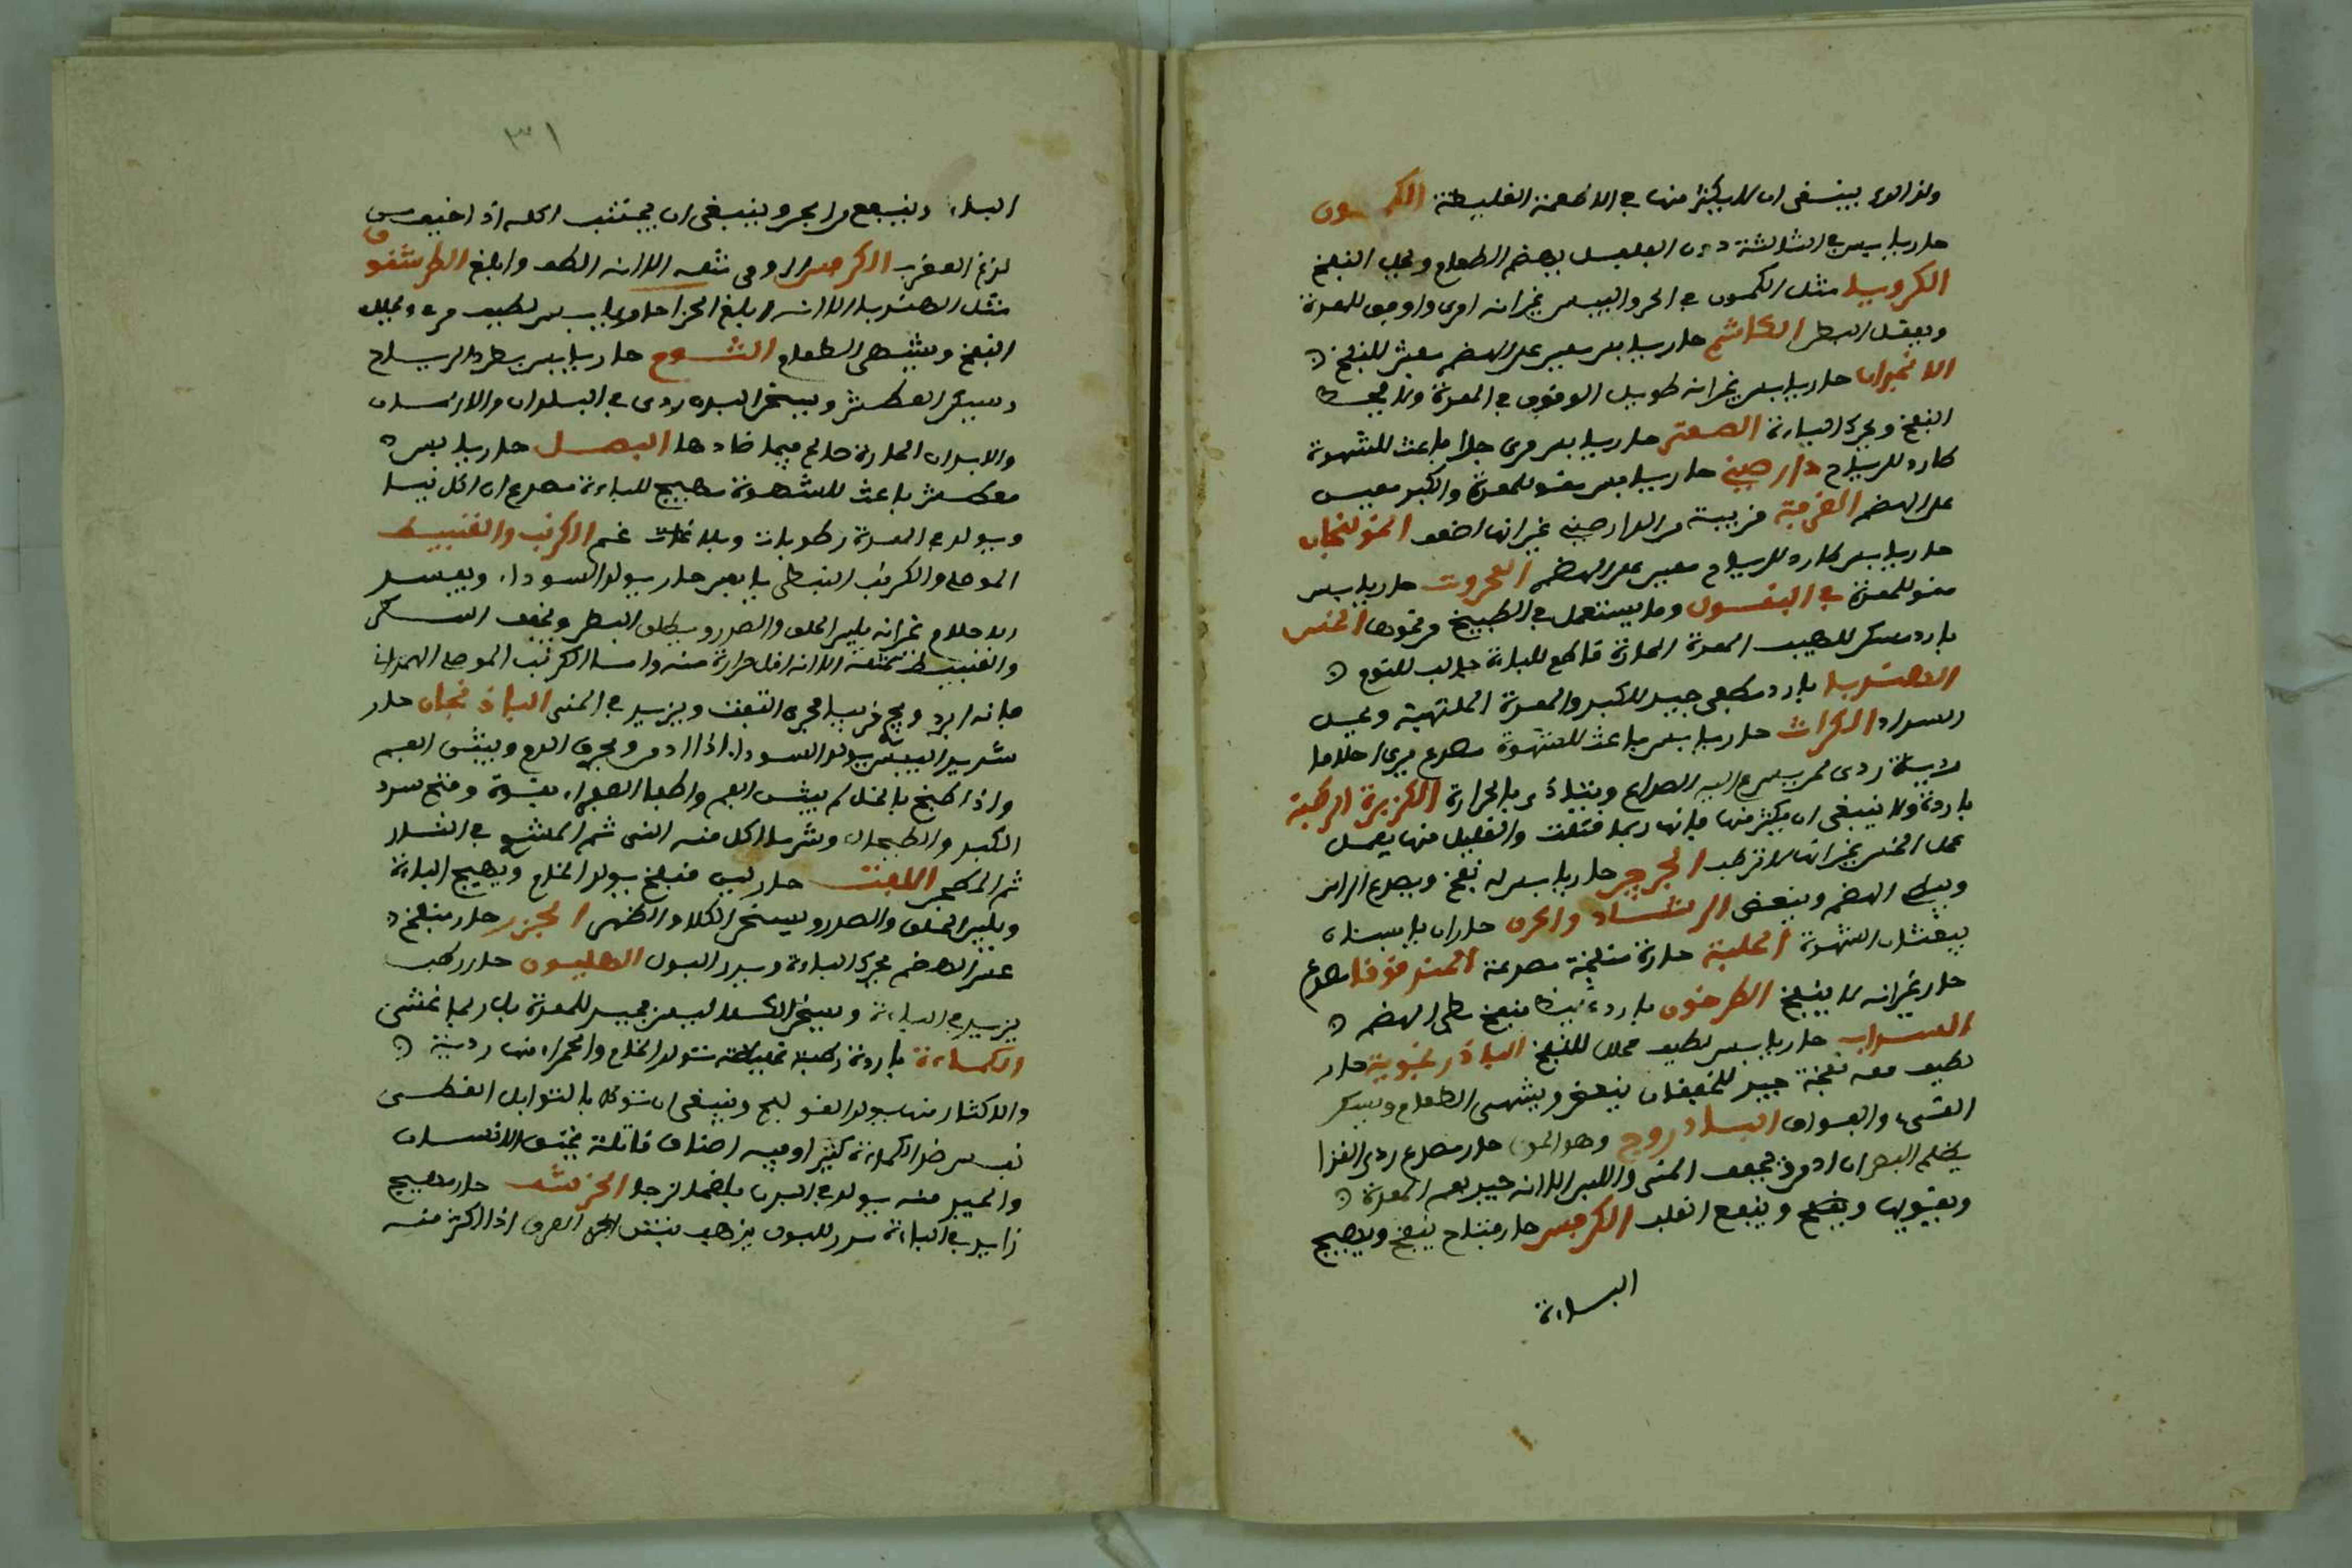 ولذا الورد ينبغي ان لا يكثر منها في الاطعمة الغليظة الكمون
حار يابس في الثالثة دون الفلفل يهضم الطعام ويحل النفخ
الكرويا مثل الكمون في الحر واليبس غير انه امرى واوفق للمعدة
ويعقل البطن الكاشم حار يابس معين على الهضم مفش للنفخ
الانجدان حار يابس غير انه طويل الوقوف في المعدة
النفخ ويحرك الباءة الصعتر حار يابس مرى جلا باعث للشهوة
طارد للرياح دار صيني حار يابس مقو للمعدة والكبد معين
على الهضم القرفة قريبة من الدارصيني غير انها اضعف الخولنجان
حار يابس طارد للرياح معين على الهضم العجروت حار يابس
مقو للمعدة في البقول وما يستعمل في الطبيخ من نحوها الخس
بارد مسكن للهيب المعدة الحارة قاطع للباءة جالب للنوم
الهندبا بارد مطفى جيد للكبد والمعدة الملتهبة
السدد الكراث حار يابس باعث للشهوة مصدع يرى احلاما
ردية ردى لمن يسرع اليه الصداع ويتاذى بالحرارة الكزبرة الرطبة
باردة ولا ينبغي ان يكثر منها فانها ربما قتلت والقليل منها يعمل
عمل الخس غير انها لا ترطب الجرجير حار يابس له نفخ ويصدع الراس
الهضم وينعض الرشاد والحرف حاران يابسان
الشهوة الحلبة حارة منفخة مصدعة الحندقوقا مصدع
حار غير انه لا ينفخ الطرخون بارد منفخ بطى الهضم
السداب حار يابس لطيف محلل للنفخ الباذرنجوية حار
لطيف معه نفخة جيد للخفقان ينفخ ويشهى الطعام ويسكن
القىء والفواق الباذروج وهو الحوك حار مصدع ردى الغذا
يظلم البصر ان ادمن يجفف المنى واللبن الا انه جيد لفم المعدة
ويقويها وينفع القلب الكرفس حار فتاح ينفخ ويهيج
الباءة
٣١
الباءة وينفع من البحر وينبغي ان يجتنب اكله اذا خيف من
لدغ العقرب الكرفس الرومى مثله الا انه الطف وابلغ الطرشقوق
مثل الهندبا الا انه ابلغ الجزا حار يابس لطيف مرىء يحلل
النفخ ويشهى الطعام الثوم حار يابس يطرد الرياح
ويسكن العطش ويسخن البدن ردى في البلدان والازمان
والابدان الحارة صالح فيما ضادها البصل حار يابس
معطش باعث للشهوة مهيج للباءة مصدع ان اكل نيا
ويولد في المعدة رطوبات وبلاغمات الكرنب والقنبيط
الموصلى والكرنب النبطى يابس حار يولد السوداء ويفسد
الاحلام غير انه يلين الحلق والصدر ويطلق البطن ويخفف السكر
والقنبيط مثله الا انه اقل حرارة منه واما الكرنب الموصلى الهمذانى
فانه ابرد ويزيد في المنى الباذنجان حار
شديد اليبس يولد السوداء اذا ادمن ويحرق الدم ويبثر الفم
واذا طبخ بالخل لم يبثر الفم واطفا الصفراء بقوة وفتح سدد
الكبد والطحال وشر ما اكل منه النى ثم المشوى في النار
ثم المطجن اللفت حار لين منفخ يولد الخام ويهيج الباءة
ويلين الحلق والصدر ويسخن الكلا والظهر الجزر حار منفخ
عسر الهضم يحرك الباءة ويدر البول الهليون حار رطب
يزيد في الباءة ويسخن الكلا ليس بجيد للمعدة بل ربما غثى
الكماءة باردة رطبة غليظة تولد الخام والحمراء منها ردية
والاكثار منها يولد القولنج وينبغي ان توكل بالتوابل
من ضد الكماءة كثيرا وفيه اصناف قاتلة تخنق الانسان
والجيد منه يولد في البدن بلغما لزجا الحرشف حار مهيج
زايد في الباءة مدر للبول يذهب بنتن العرق اذا اكثر منه